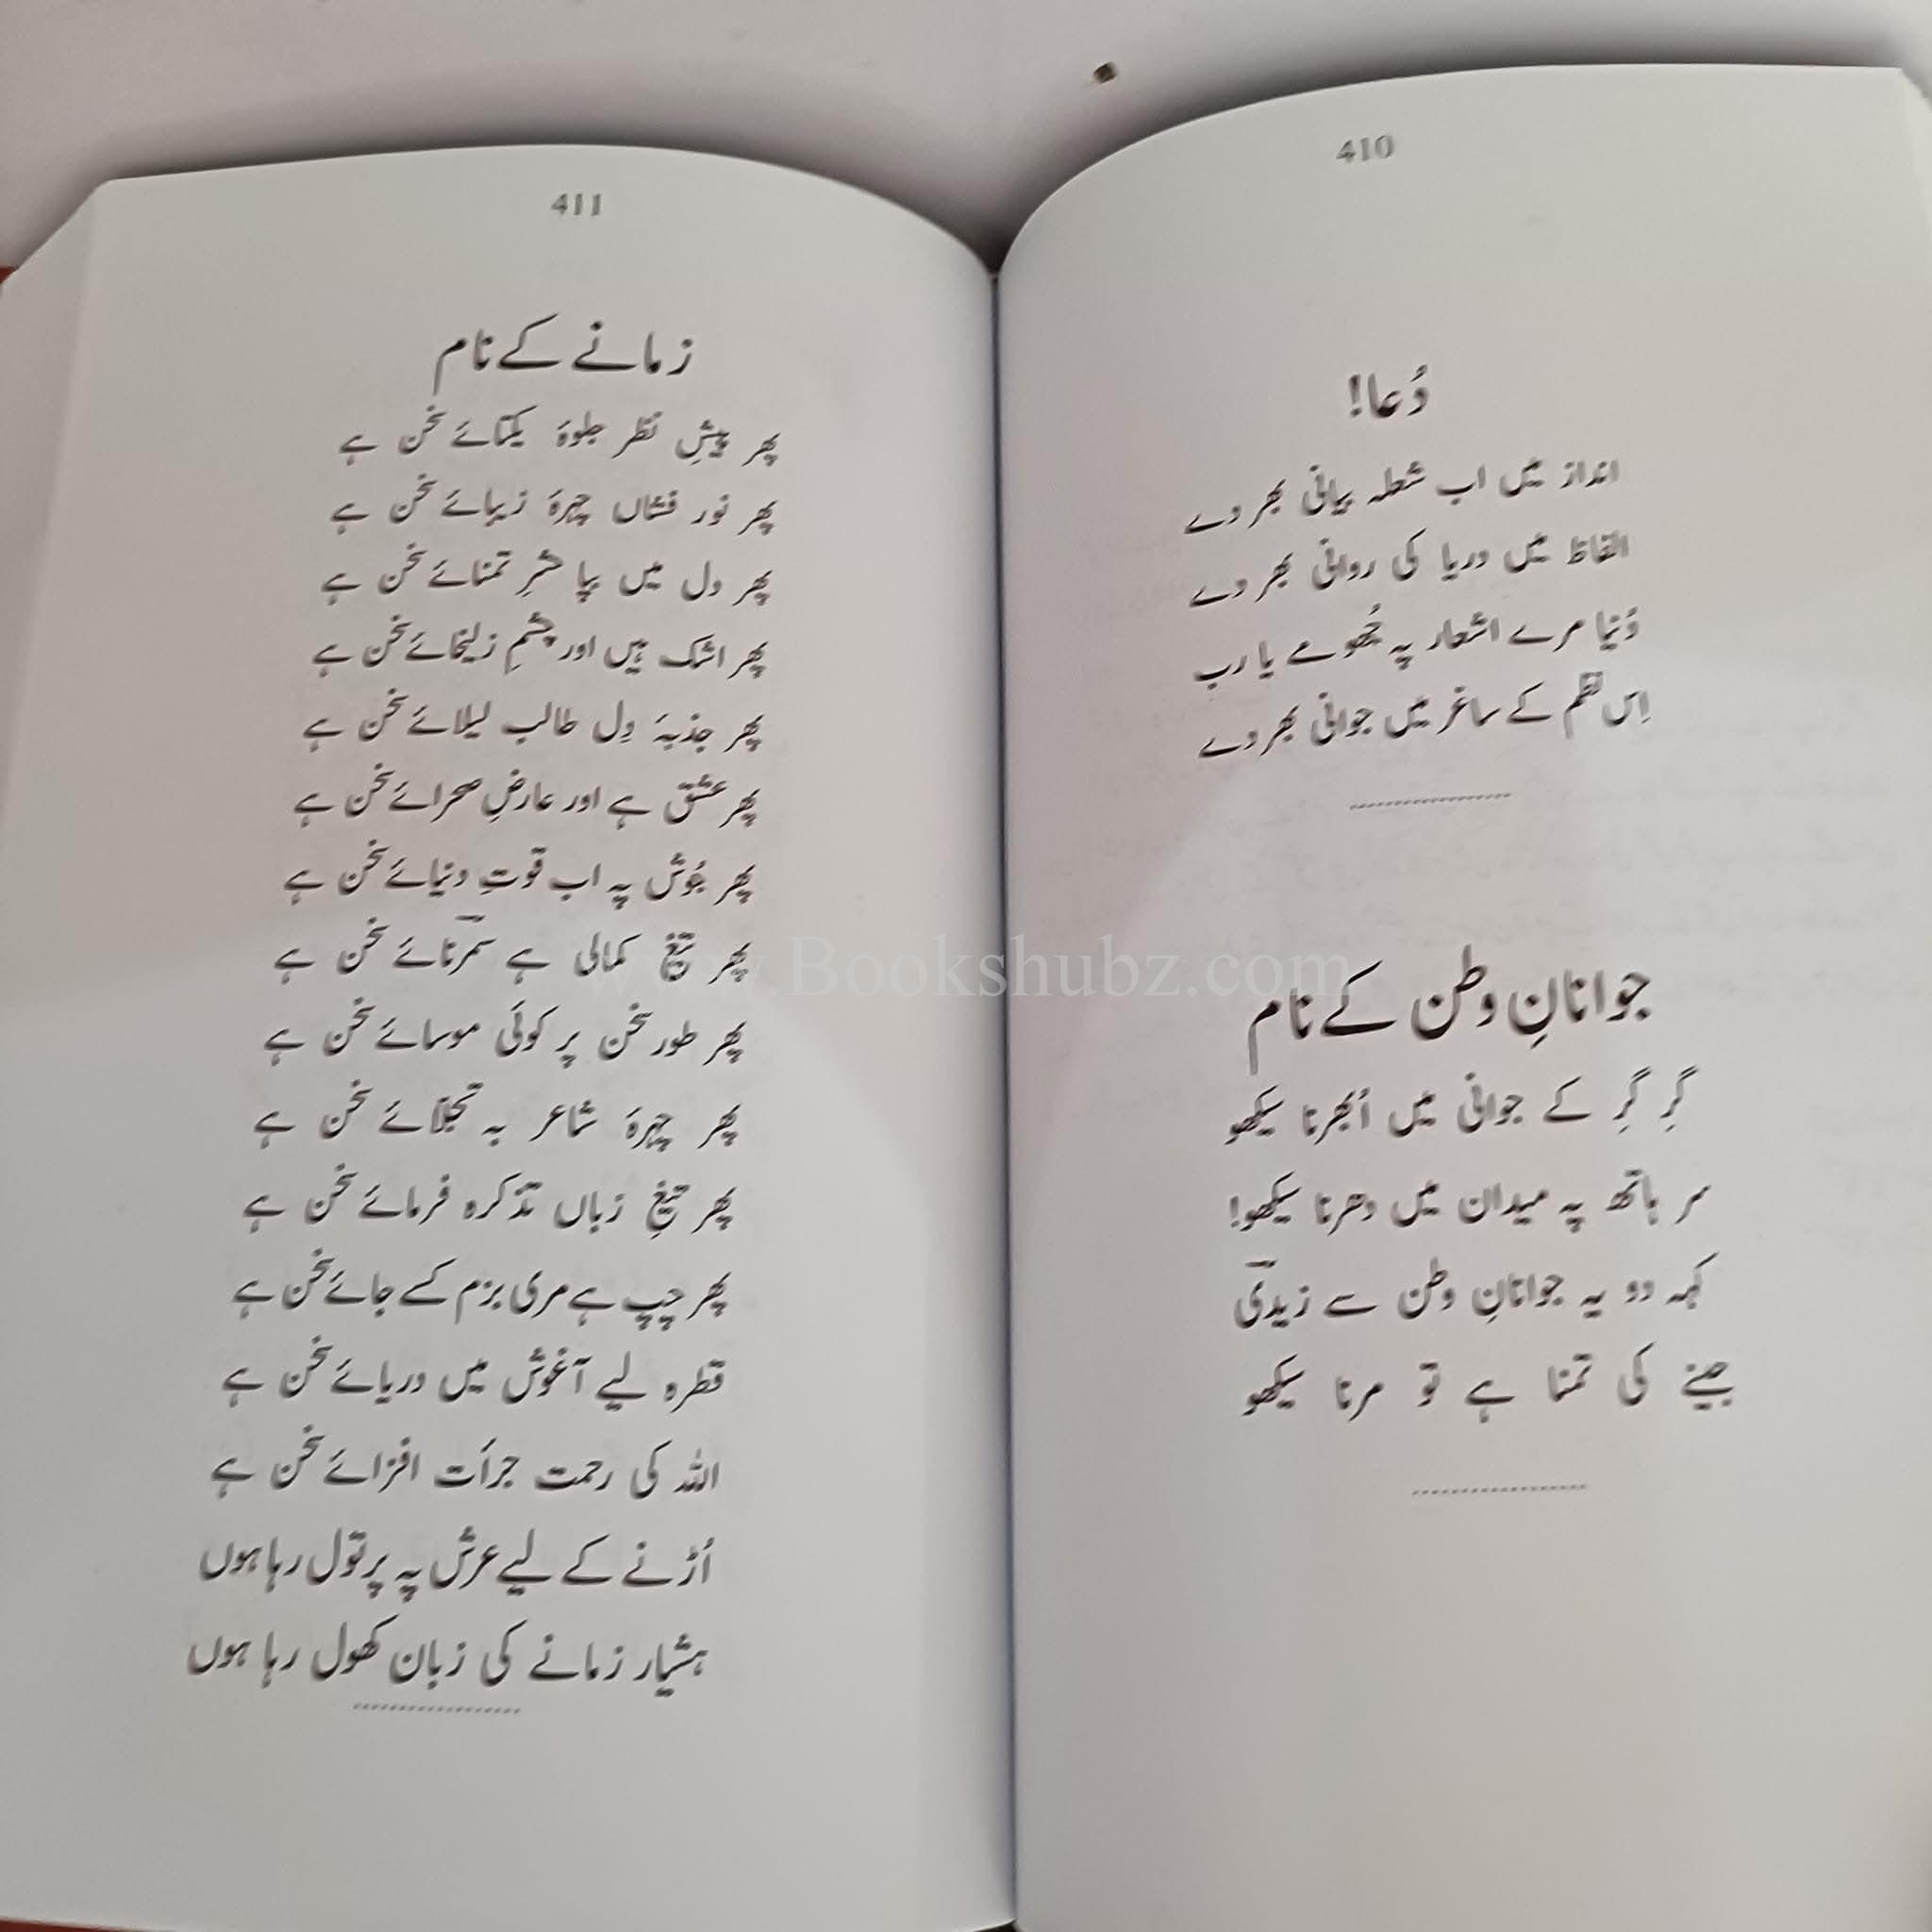 410
دُعا!
انداز میں اب شعلہ بیانی بھر دے
الفاظ میں دریا کی روانی بھر دے
دُنیا مرے اشعار پہ جُھومے یا رب
اِس نظم کے ساغر میں جوانی بھر دے
جوانانِ وطن کے نام
گِر گِر کے جوانی میں اُبھرنا سیکھو
سر ہاتھ پہ میدان میں دھرنا سیکھو!
کہہ دو یہ جوانانِ وطن سے زیدؔی
جینے کی تمنا ہے تو مرنا سیکھو
411
زمانے کے نام
پھر پیشِ نظر جلوۂ یکتائے سخن ہے
پھر نور فشاں چہرۂ زیبائے سخن ہے
پھر دل میں بپا حشرِ تمنائے سخن ہے
پھر اشک ہیں اور چشمِ زلیخائے سخن ہے
پھر جذبۂ دِل طالب لیلائے سخن ہے
پھر عشق ہے اور عارضِ صحرائے سخن ہے
پھر جُوش پہ اب قوتِ دنیائے سخن ہے
پھر تیغ کمالی ہے سمرنائے سخن ہے
پھر طور سخن پر کوئی موسائے سخن ہے
پھر چہرۂ شاعر بہ تجلائے سخن ہے
پھر تیغِ زباں تذکرہ فرمائے سخن ہے
پھر چپ ہے مری بزم کے جائے سخن ہے
قطرہ لیے آغوش میں دریائے سخن ہے
اللہ کی رحمت جرأت افزائے سخن ہے
اُڑنے کے لیے عرش پہ پر تول رہا ہوں
ہشیار زمانے کی زبان کھول رہا ہوں
www.Bookshubz.com